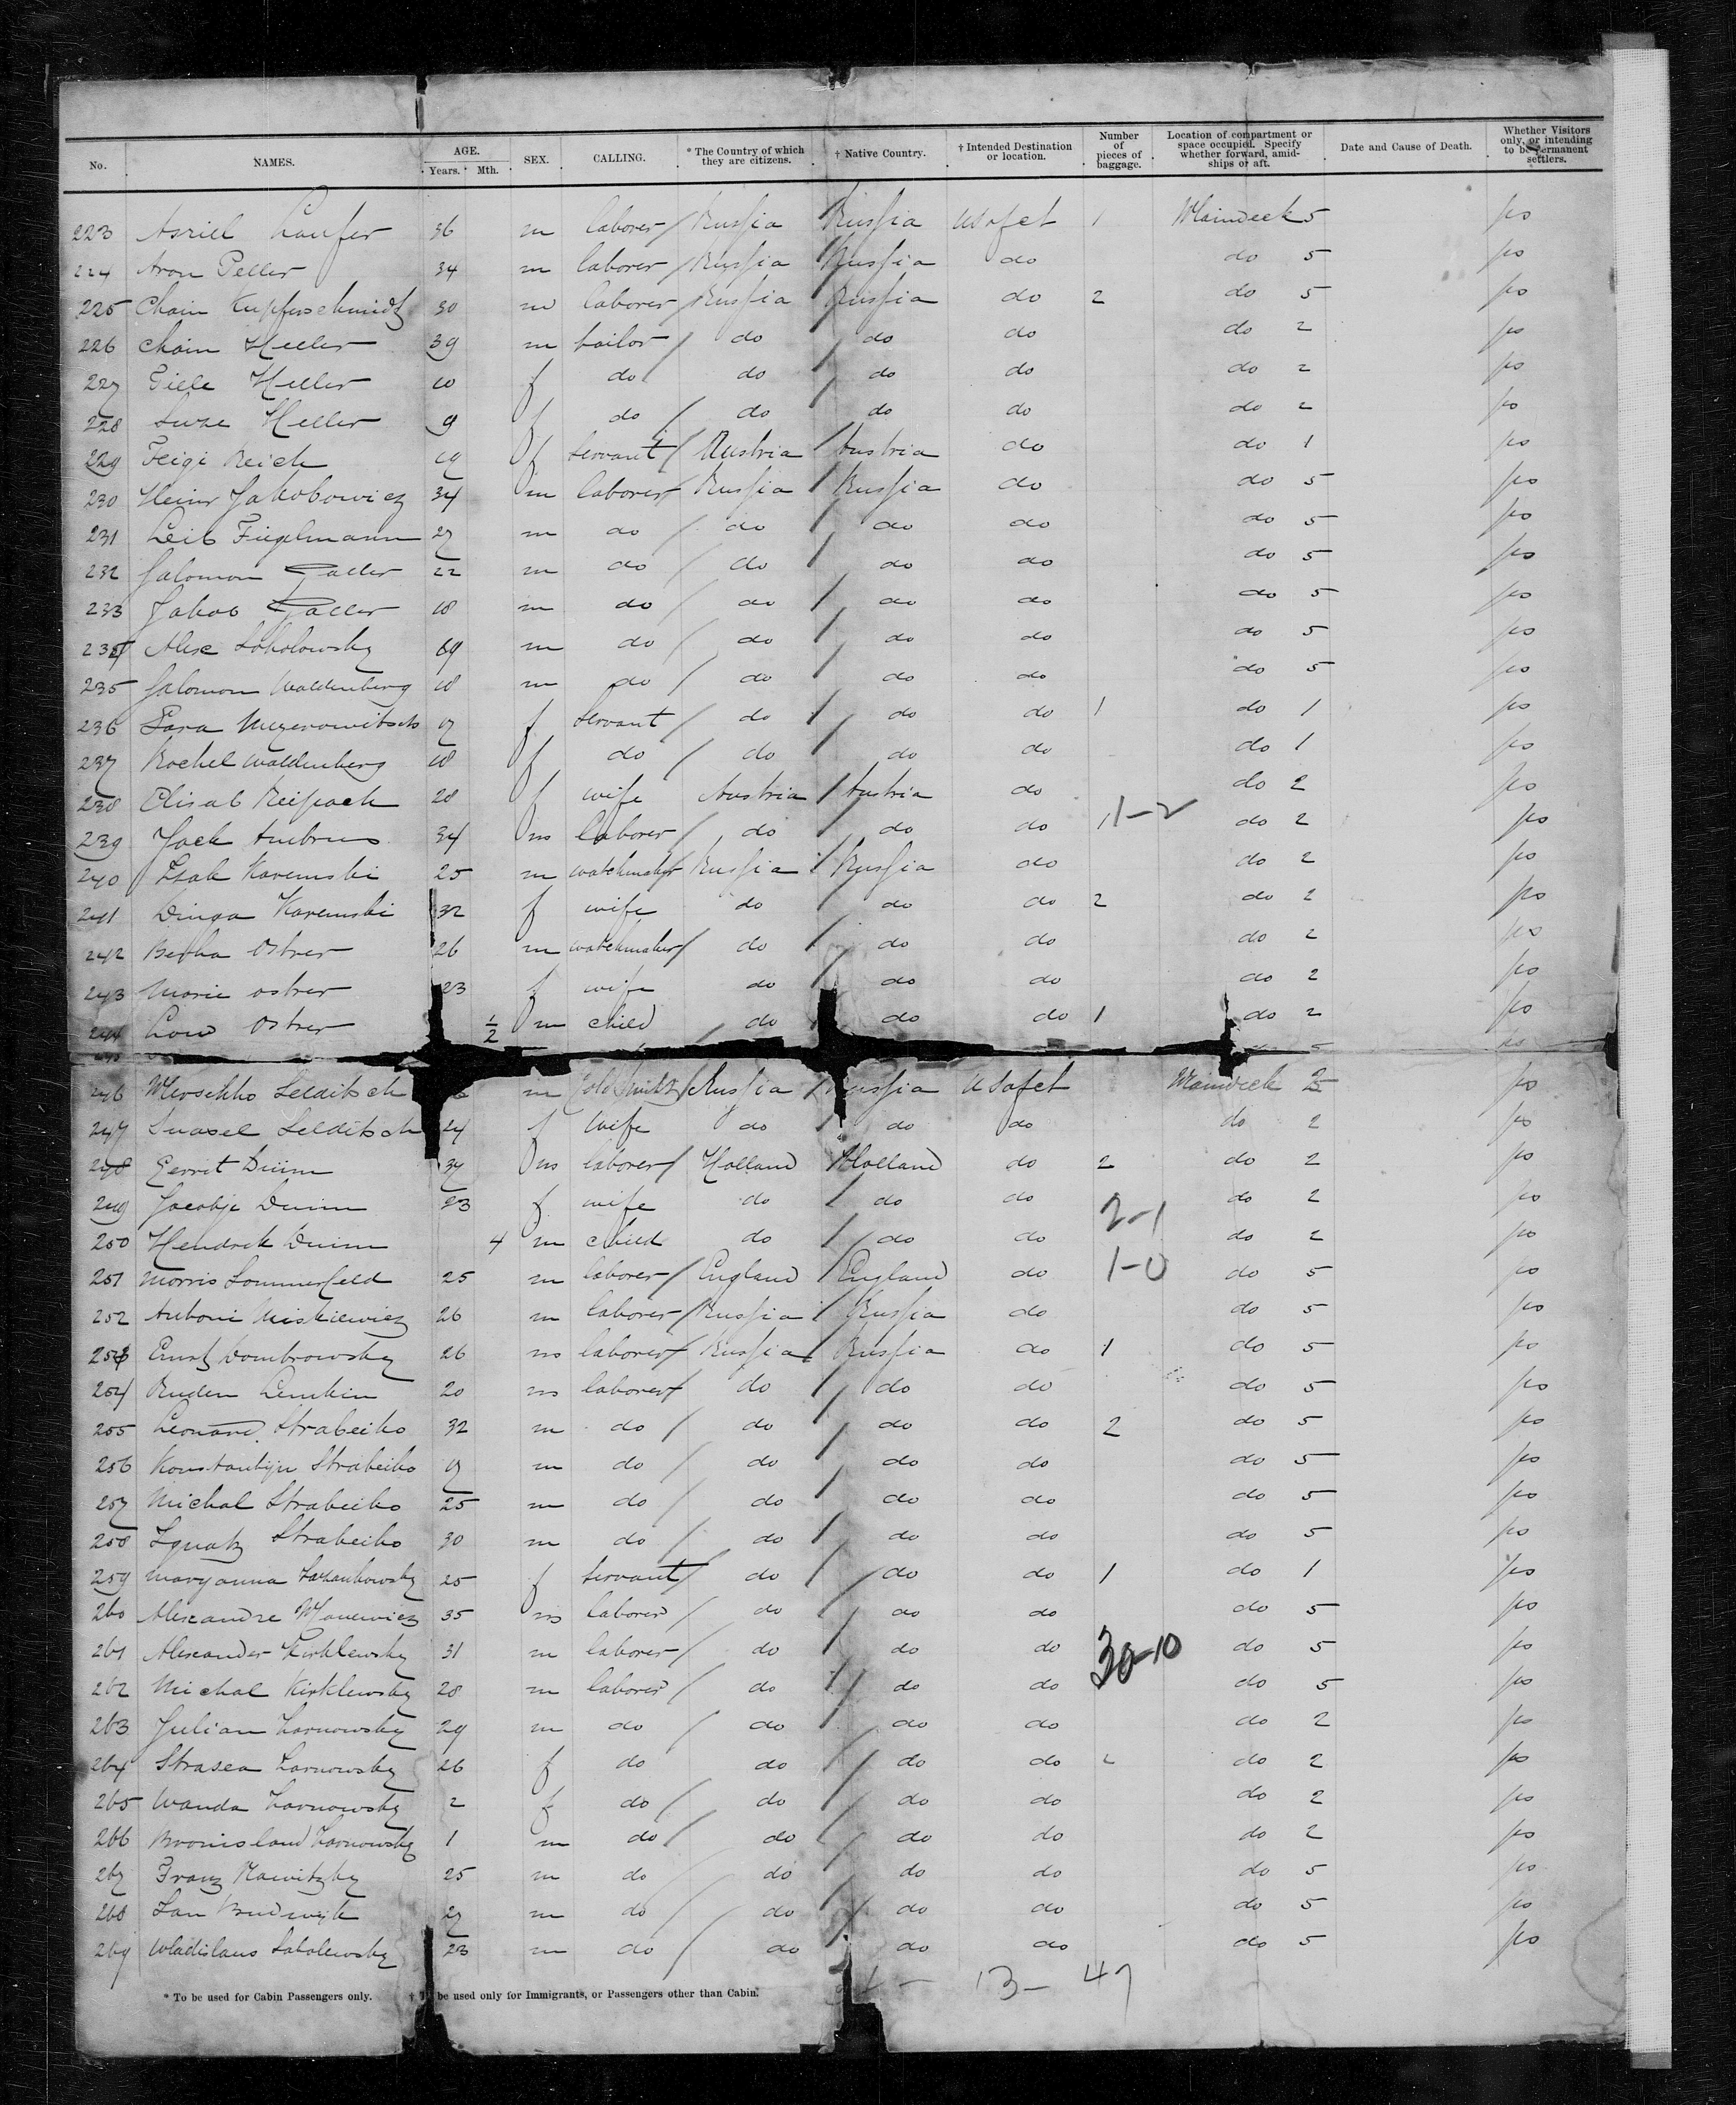 No. NAMES. AGE. Years. Mth. SEX. CALLING. * The Country of which they are citizens. † Native Country. † Intended Destination or location. Number of pieces of baggage. Location of compartment or space occupied. Specify whether forward, amidships or aft. Date and Cause of Death. Whether Visitors only, or intending to be permanent settlers.
223 Asriel Laufer 36 m laborer / Russia Russia U S of ct 1 Maindeck 5 ps
224 Aron Peller 34 m laborer / Russia Russia do do 5 ps
225 Chaim Kupferschmidt 30 m laborer / Russia Russia do 2 do 5 ps
226 Chaim Heller 39 m tailor / do / do do do 2 ps
227 Heller 10 f do do / do do do 2 ps
228 Heller 9 f do / do / do do do 2 ps
229 Feigi Reich 19 f servant / Austria / Austria do do 1 ps
230 Jakobowicz 34 m laborer / Russia / Russia do do 5 ps
231 Leib Fiigelmann 27 m do / do / do do do 5 ps
232 Salomon 22 m do / do / do do do 5 ps
233 Jakob 18 m do / do / do do do 5 ps
234 Alex Sokolowsky 19 m do / do / do do do 5 ps
235 Salomon Waldenberg 18 m do / do / do do do 5 ps
236 Sara 17 f servant / do / do do 1 do 1 ps
237 Rochel Waldenberg 18 f do / do / do do do 1 ps
238 Elisab 28 f wife Austria / Austria do do 2 ps
239 Jack Ambrus 34 m laborer / do / do do 1 1-2 do 2 ps
240 Isak Karemski 25 m watchmaker / Russia / Russia do do 2 ps
241 Karemski 32 f wife do / do do 2 do 2 ps
242 Ostrer 26 m watchmaker / do / do do do 2 ps
243 Marie Ostrer 23 f wife do / do do do 2 ps
244 Ostrer 1/2 m child do do do 1 do 2 ps
246 Lelditsch m Goldsmith / Russia / Russia U S of ct Maindeck 2 ps
247 Lelditsch 24 f wife do / do do do 2 ps
248 Gerrit Duim 37 m laborer / Holland / Holland do 2 do 2 ps
249 Jacobje Duim 23 f wife do / do do 2-1 do 2 ps
250 Hendrik Duim 4 m child do / do do do 2 ps
251 Morris Sommerfeld 25 m laborer / England / England do 1-0 do 5 ps
252 Antoni Miskiewicz 26 m laborer / Russia / Russia do do 5 ps
253 Ernst Dombrowsky 26 m laborer / Russia / Russia do 1 do 5 ps
254 Ruden Lemkin 20 m laborer / do / do do do 5 ps
255 Leonard Strabeiko 32 m do / do / do do 2 do 5 ps
256 Konstantijn Strabeiko 17 m do / do / do do do 5 ps
257 Michal Strabeiko 25 m do / do / do do do 5 ps
258 Ignatz Strabeiko 30 m do / do / do do do 5 ps
259 Maryanna 25 f servant / do / do do 1 do 1 ps
260 Alexandre 35 m laborer / do / do do do 5 ps
261 Alexander Kirklewsky 31 m laborer / do / do do 30-10 do 5 ps
262 Michal Kirklewsky 28 m laborer / do / do do do 5 ps
263 Julian Zarnowsky 29 m do / do do do do 2 ps
264 Zarnowsky 26 f do do / do do 2 do 2 ps
265 Wanda Zarnowsky 2 f do / do / do do do 2 ps
266 Zarnowsky 1 m do / do / do do do 2 ps
267 Franz 25 m do / do / do do do 5 ps
268 Jan 27 m do / do / do do do 5 ps
269 Wladislaus Sobolewsky 23 m do / do / do do do 5 ps
34 - 13 - 47
* To be used for Cabin Passengers only. † To be used only for Immigrants, or Passengers other than Cabin.